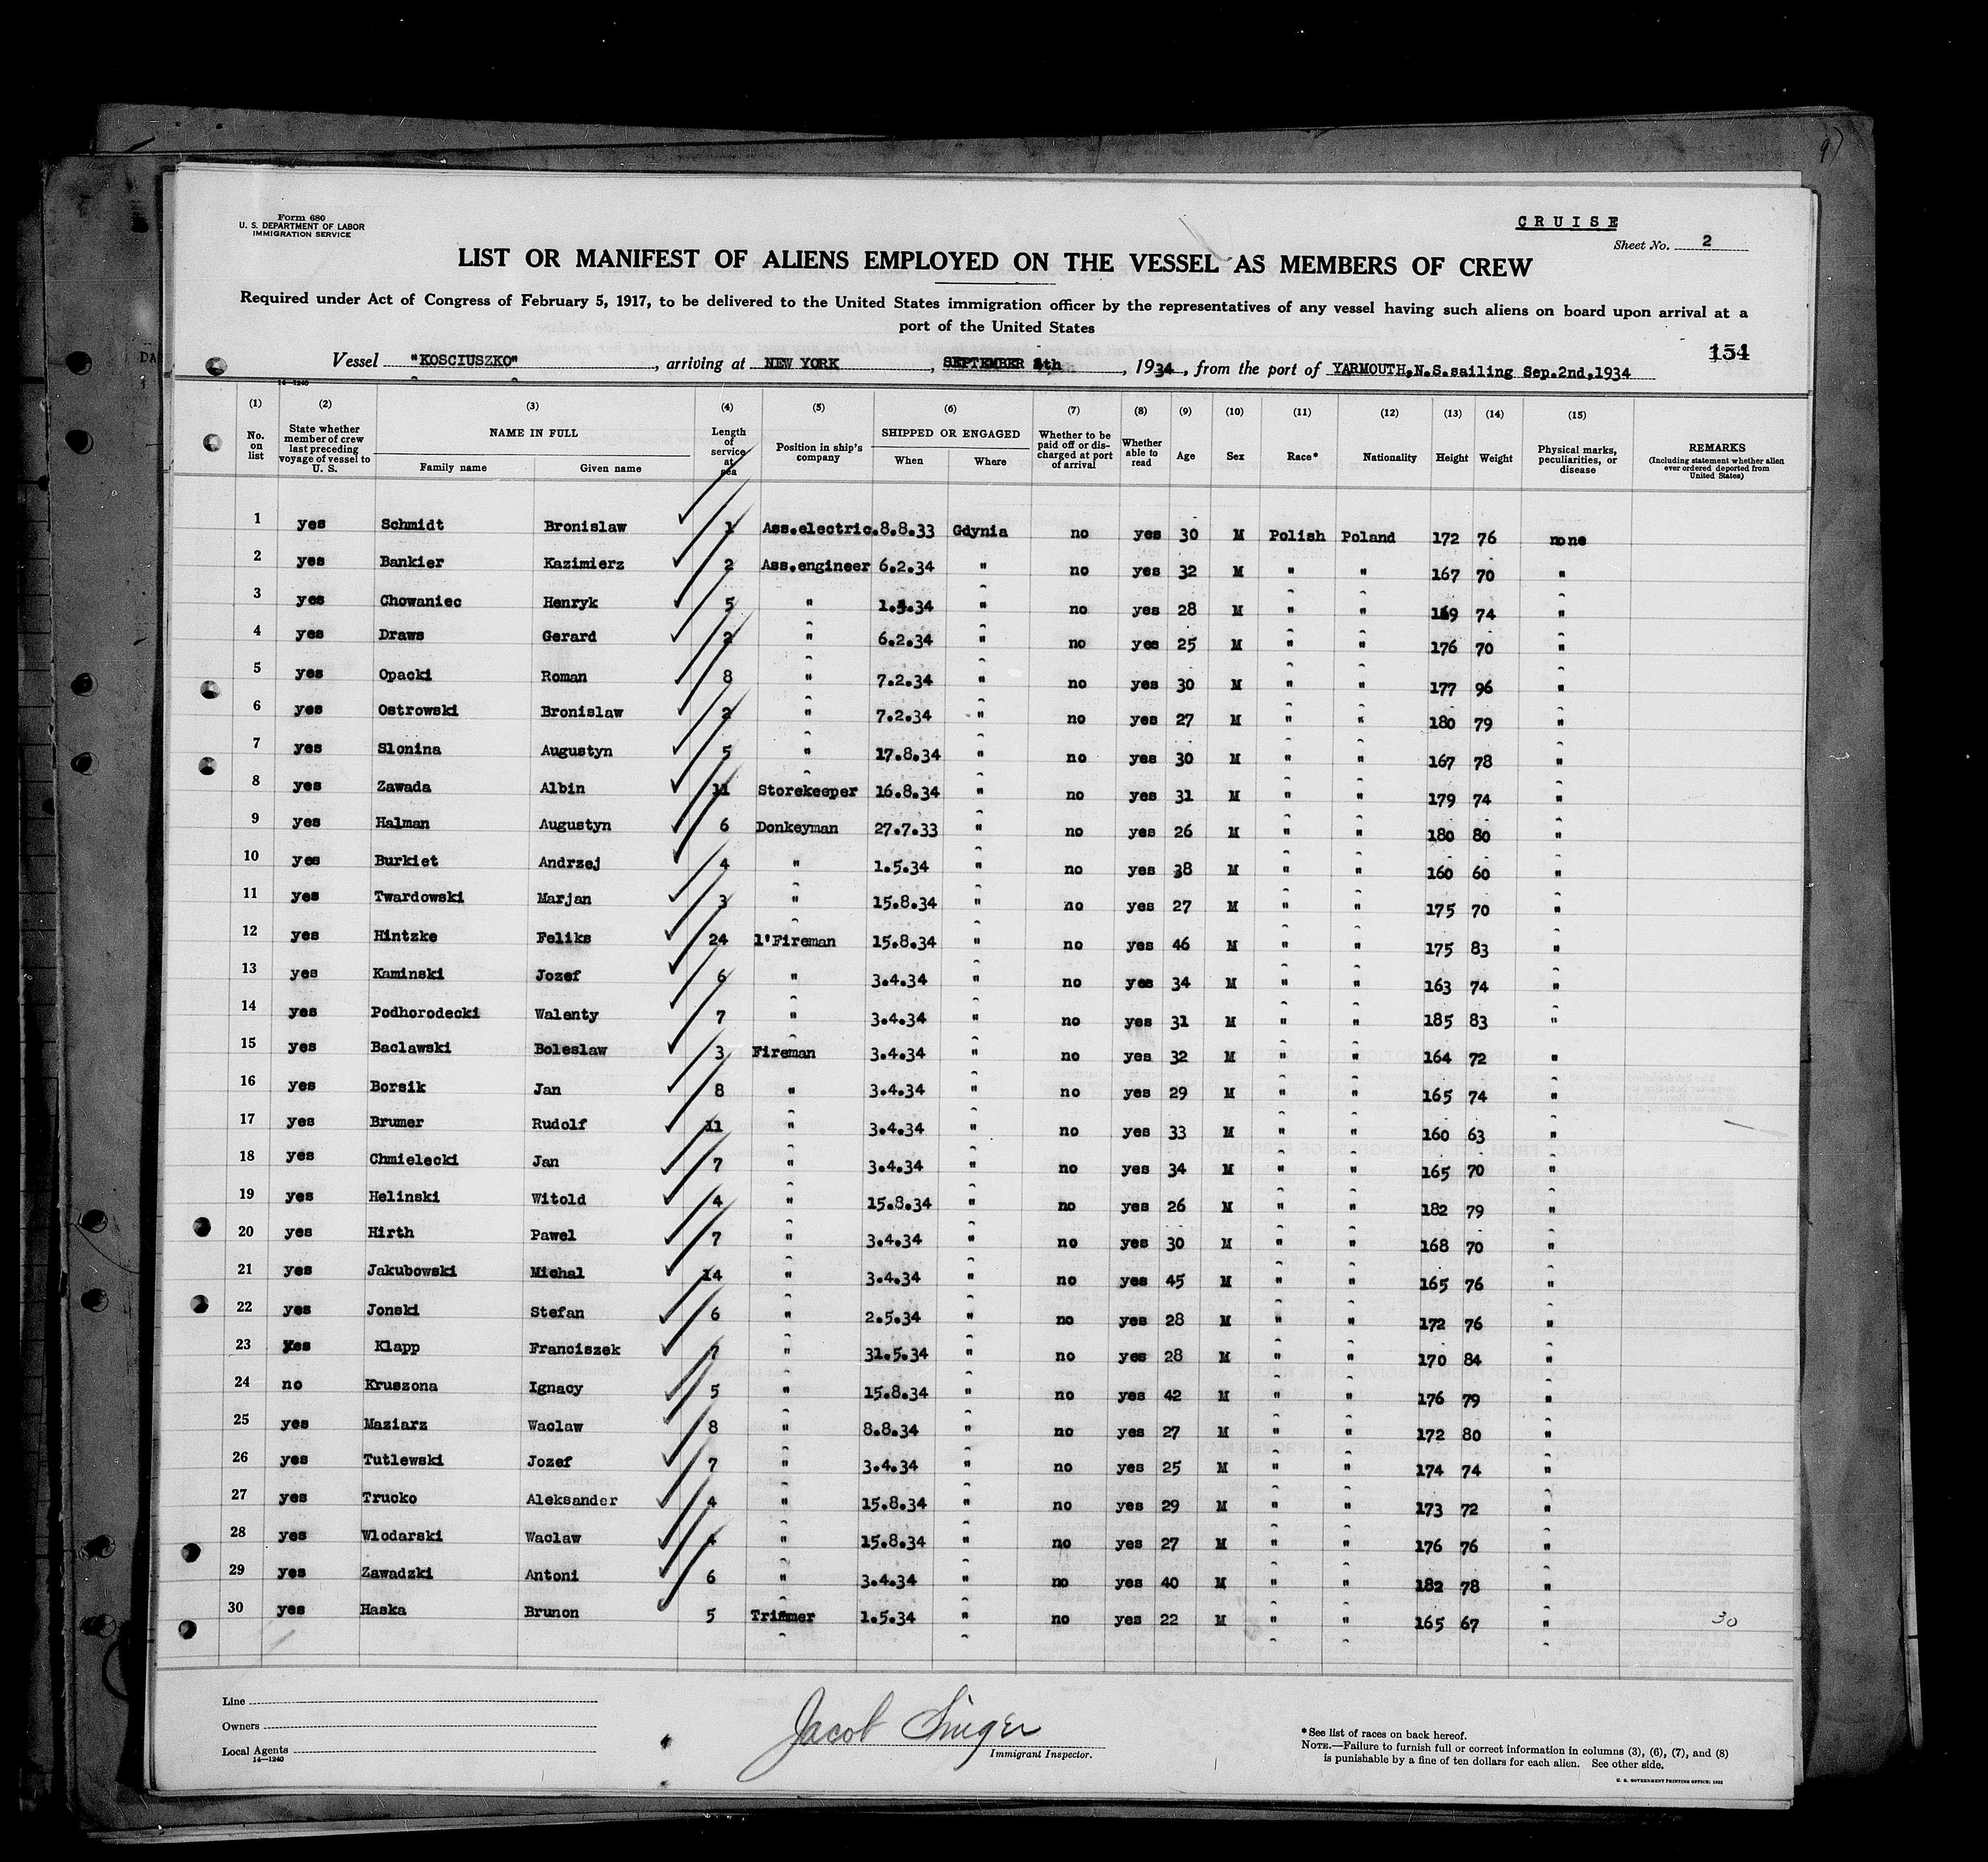 9)
Form 680
U. S. DEPARTMENT OF LABOR
IMMIGRATION SERVICE
CRUISE
Sheet No. 2
LIST OR MANIFEST OF ALIENS EMPLOYED ON THE VESSEL AS MEMBERS OF CREW
Required under Act of Congress of February 5, 1917, to be delivered to the United States immigration officer by the representatives of any vessel having such aliens on board upon arrival at a
port of the United States
154
Vessel "KOSCIUSZKO", arriving at NEW YORK, SEPTEMBER 4th, 1934, from the port of YARMOUTH,N.S.sailing Sep.2nd,1934
14—1240
(1) (2) (3) (4) (5) (6) (7) (8) (9) (10) (11) (12) (13) (14) (15)
No. on list | State whether member of crew last preceding voyage of vessel to U. S. | NAME IN FULL Family name Given name | Length of service at sea | Position in ship's company | SHIPPED OR ENGAGED When Where | Whether to be paid off or discharged at port of arrival | Whether able to read | Age | Sex | Race* | Nationality | Height | Weight | Physical marks, peculiarities, or disease | REMARKS (Including statement whether alien ever ordered deported from United States)
1 yes Schmidt Bronislaw 1 Ass.electric. 8.8.33 Gdynia no yes 30 M Polish Poland 172 76 none
2 yes Bankier Kazimierz 2 Ass.engineer 6.2.34 " no yes 32 M " " 167 70 "
3 yes Chowaniec Henryk 5 " 1.5.34 " no yes 28 M " " 169 74 "
4 yes Draws Gerard 2 " 6.2.34 " no yes 25 M " " 176 70 "
5 yes Opacki Roman 8 " 7.2.34 " no yes 30 M " " 177 96 "
6 yes Ostrowski Bronislaw 2 " 7.2.34 " no yes 27 M " " 180 79 "
7 yes Slonina Augustyn 5 " 17.8.34 " no yes 30 M " " 167 78 "
8 yes Zawada Albin 11 Storekeeper 16.8.34 " no yes 31 M " " 179 74 "
9 yes Halman Augustyn 6 Donkeyman 27.7.33 " no yes 26 M " " 180 80 "
10 yes Burkiet Andrzej 4 " 1.5.34 " no yes 38 M " " 160 60 "
11 yes Twardowski Marjan 3 " 15.8.34 " no yes 27 M " " 175 70 "
12 yes Hintzke Feliks 24 1'Fireman 15.8.34 " no yes 46 M " " 175 83 "
13 yes Kaminski Jozef 6 " 3.4.34 " no yes 34 M " " 163 74 "
14 yes Podhorodecki Walenty 7 " 3.4.34 " no yes 31 M " " 185 83 "
15 yes Baclawski Boleslaw 3 Fireman 3.4.34 " no yes 32 M " " 164 72 "
16 yes Borsik Jan 8 " 3.4.34 " no yes 29 M " " 165 74 "
17 yes Brumer Rudolf 11 " 3.4.34 " no yes 33 M " " 160 63 "
18 yes Chmielecki Jan 7 " 3.4.34 " no yes 34 M " " 165 70 "
19 yes Helinski Witold 4 " 15.8.34 " no yes 26 M " " 182 79 "
20 yes Hirth Pawel 7 " 3.4.34 " no yes 30 M " " 168 70 "
21 yes Jakubowski Michal 14 " 3.4.34 " no yes 45 M " " 165 76 "
22 yes Jonski Stefan 6 " 2.5.34 " no yes 28 M " " 172 76 "
23 yes Klapp Franciszek 7 " 31.5.34 " no yes 28 M " " 170 84 "
24 no Kruszona Ignacy 5 " 15.8.34 " no yes 42 M " " 176 79 "
25 yes Maziarz Waclaw 8 " 8.8.34 " no yes 27 M " " 172 80 "
26 yes Tutlewski Jozef 7 " 3.4.34 " no yes 25 M " " 174 74 "
27 yes Trucko Aleksander 4 " 15.8.34 " no yes 29 M " " 173 72 "
28 yes Wlodarski Waclaw 4 " 15.8.34 " no yes 27 M " " 176 76 "
29 yes Zawadzki Antoni 6 " 3.4.34 " no yes 40 M " " 182 78 "
30 yes Haska Brunon 5 Trimmer 1.5.34 " no yes 22 M " " 165 67 " 30
Line
Owners
Local Agents
14—1240
Jacob Singer
Immigrant Inspector.
*See list of races on back hereof.
NOTE.—Failure to furnish full or correct information in columns (3), (6), (7), and (8)
is punishable by a fine of ten dollars for each alien. See other side.
U. S. GOVERNMENT PRINTING OFFICE: 1932